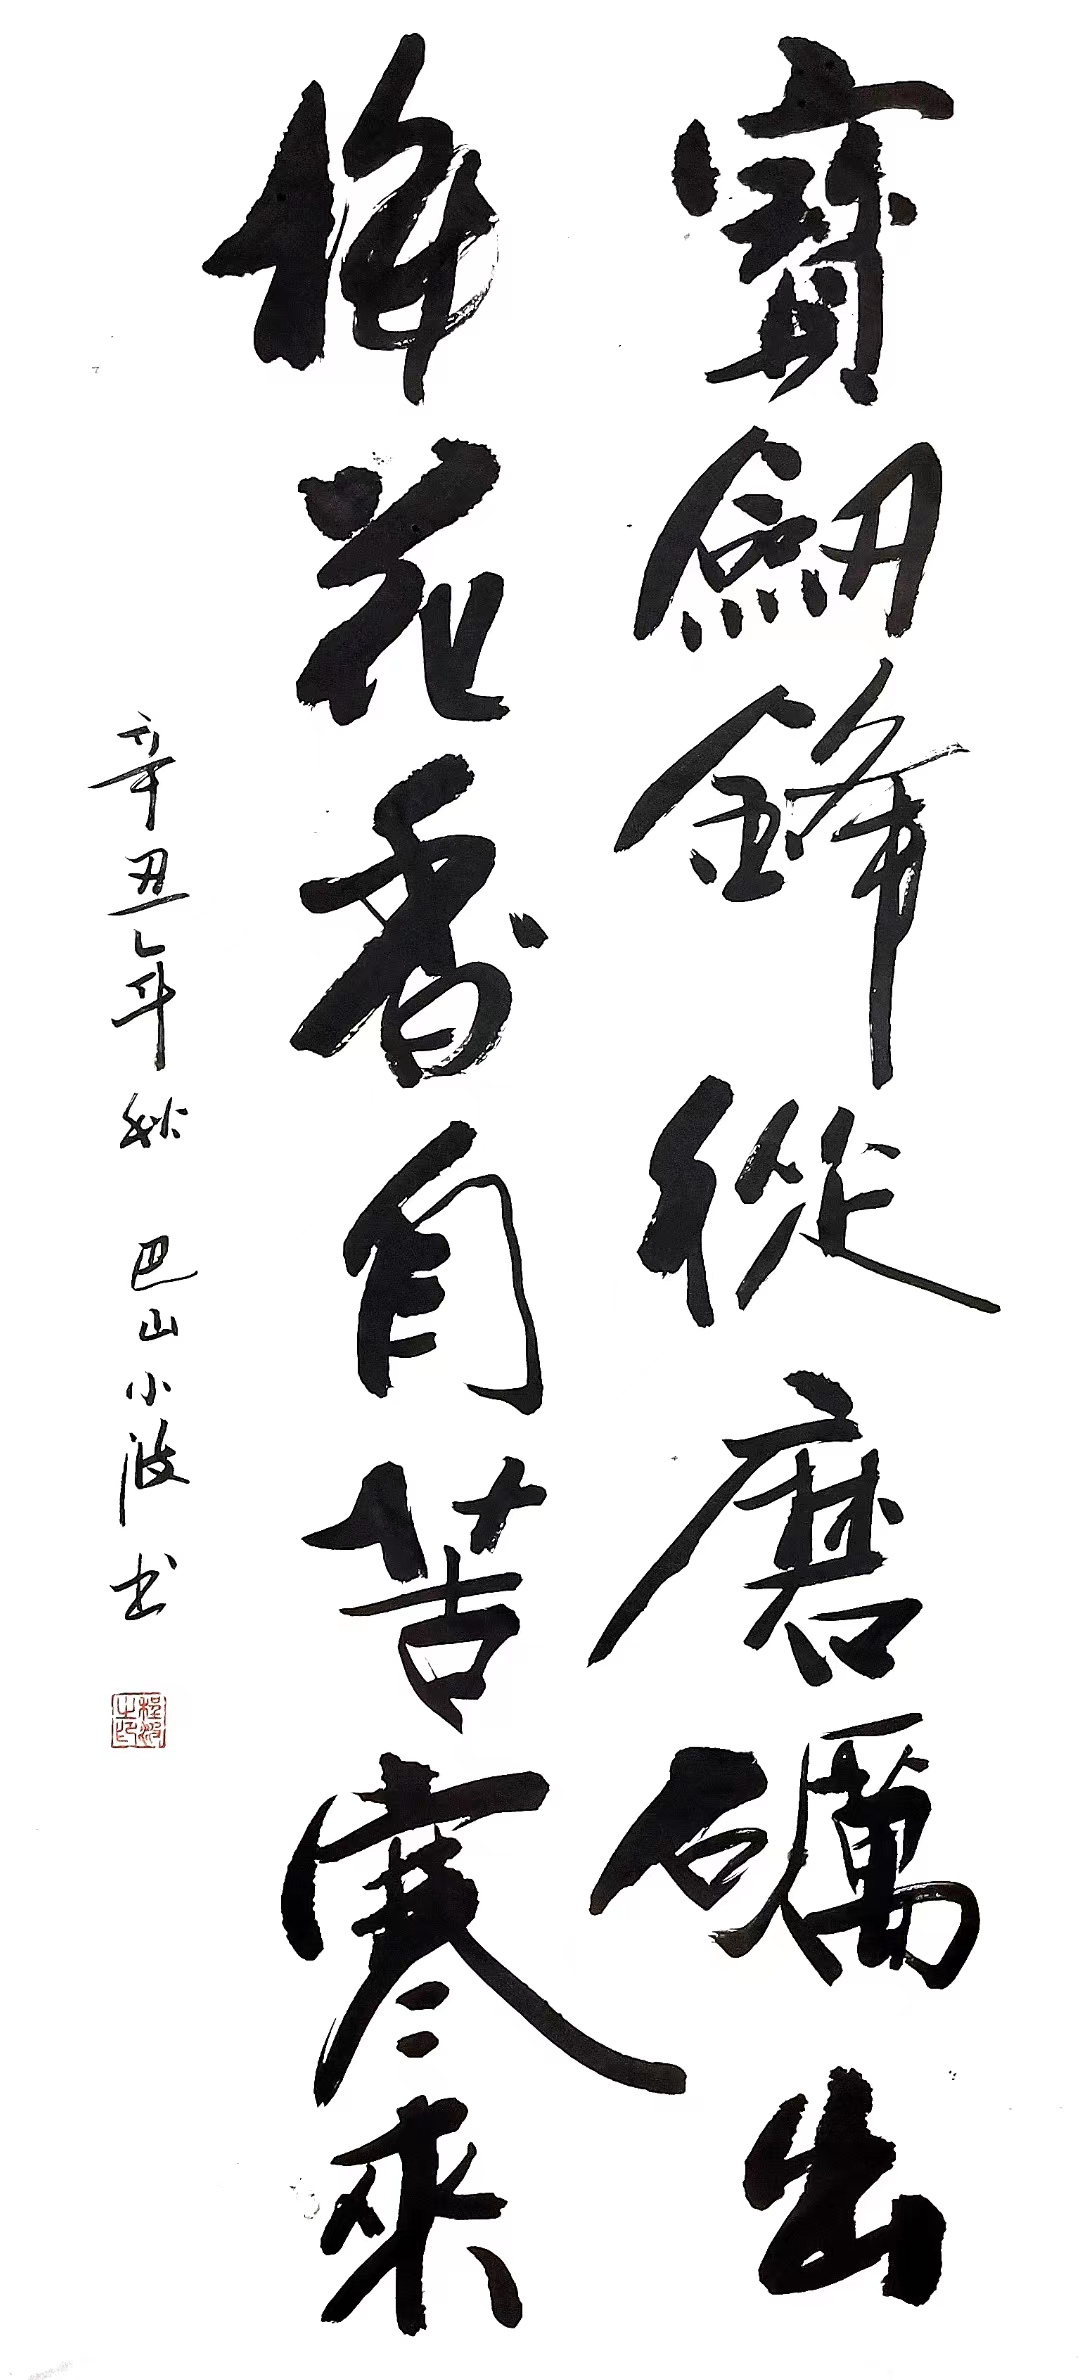 寶劒鋒從磨礪出
梅花香自苦寒來
辛丑年秋 巴山小波书
程波之印